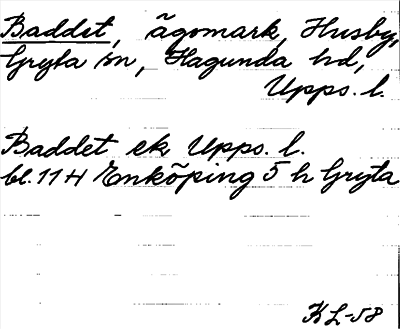 Baddet, ägomark, Husby,
Gryta sn, Hagunda hd,
Upps. l.
Baddet ek Upps. l.
bl. 11 H Enköping 5 h Gryta
KL-58